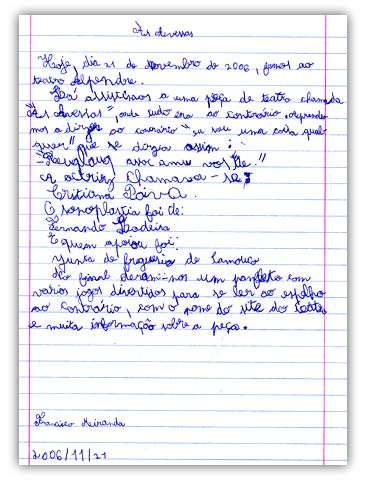 Às avessas
Hoje, dia 21 de Novembro de 2006, fomos ao
teatro Alpendre.
Lá assistimos a uma peça de teatro chamada
"Às avessas", onde tudo era ao contrário, aprende-
mos a dizer ao contrário "eu sou uma coisa qual-
quer" que se dizia assim:
A actriz chamava-se:
Cristiana Paiva.
O sonoplastia foi de:
Fernando Madeira
E quem apoiou foi:
Junta de freguesia de
No final deram-nos um panfleto com
varios jogos divertidos para se ler ao espelho
ao contrário, com o nome do site do teatro
e muita informação sobre a peça.
Francisco Miranda
2006/11/21